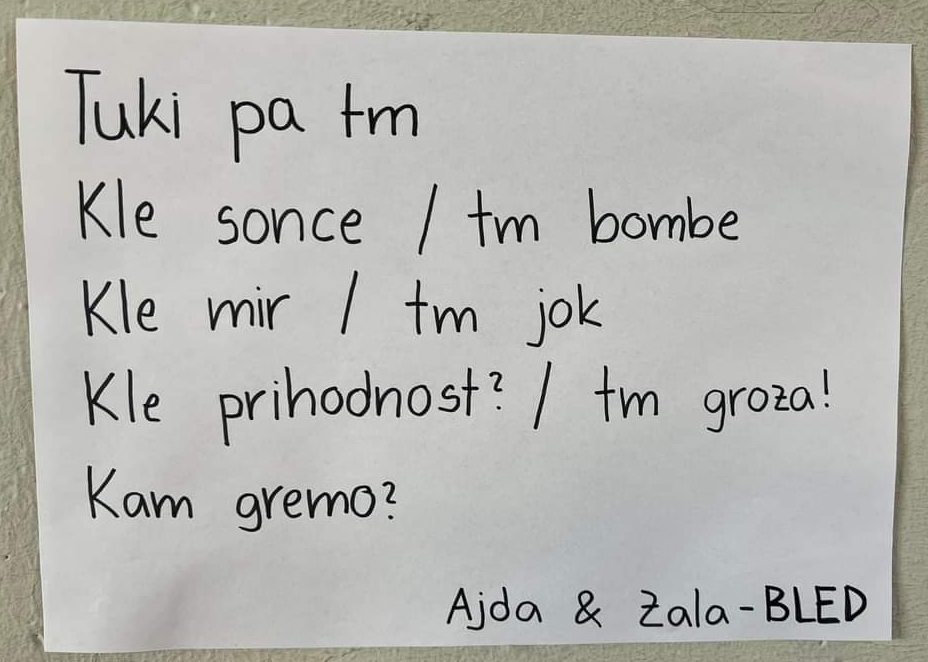 Tuki pa tm
Kle sonce / tm bombe
Kle mir / tm jok
Kle prihodnost? / tm groza!
Kam gremo?
Ajda & Žala - BLED